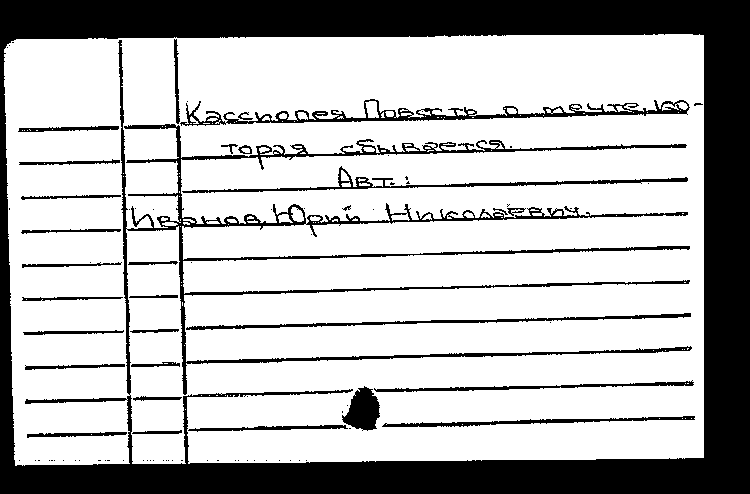 Кассиопея Повесть о мечте, ко-
торая сбывается.
Авт.:
Иванов, Юрий Николаевич.